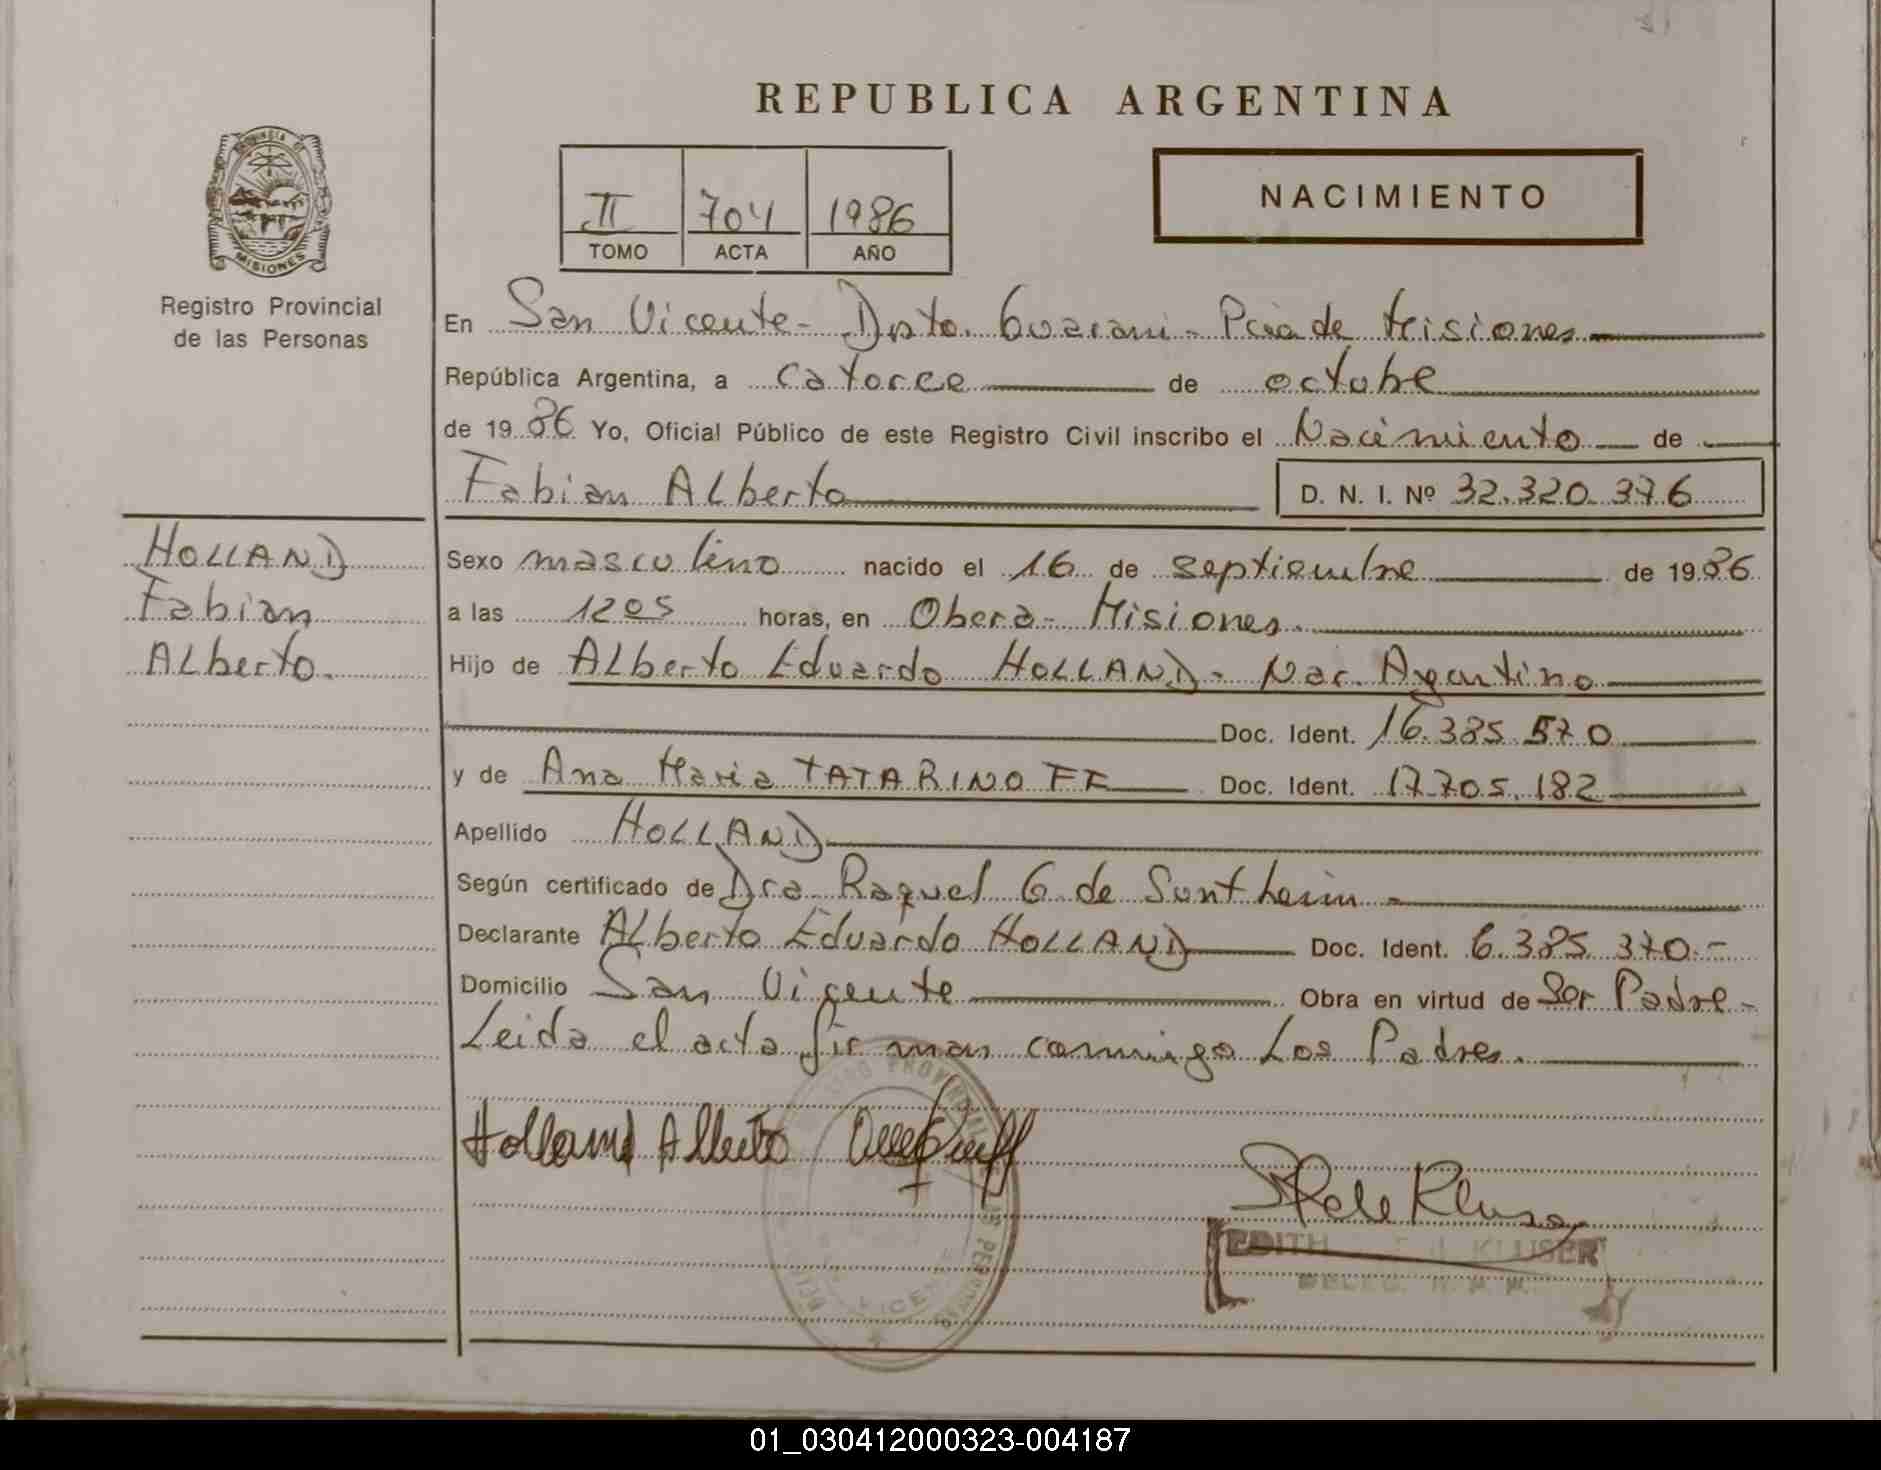 REPUBLICA ARGENTINA
PROVINCIA DE
MISIONES
Registro Provincial
de las Personas
II 704 1986
TOMO ACTA AÑO
NACIMIENTO
En San Vicente - Dpto. Guarani - Pcia de Misiones
República Argentina, a catorce de octubre
de 1986 Yo, Oficial Público de este Registro Civil inscribo el Nacimiento de
Fabian Alberto D. N. I. Nº 32.320.376
HOLLAND
Fabian
Alberto.
Sexo masculino nacido el 16 de septiembre de 1986
a las 1205 horas, en Obera - Misiones.
Hijo de Alberto Eduardo HOLLAND - Nac. Argentino
Doc. Ident. 16.385.570
y de Ana Maria TATARINOFF Doc. Ident. 17.705.182
Apellido HOLLAND
Según certificado de Dra Raquel G de Sontheim -
Declarante Alberto Eduardo HOLLAND Doc. Ident. 6.385.370.-
Domicilio San Vicente Obra en virtud de Ser Padre -
Leida el acta firman conmigo Los Padres.
Holland Alberto
EDITH KLUSER
DELEG.
01_030412000323-004187